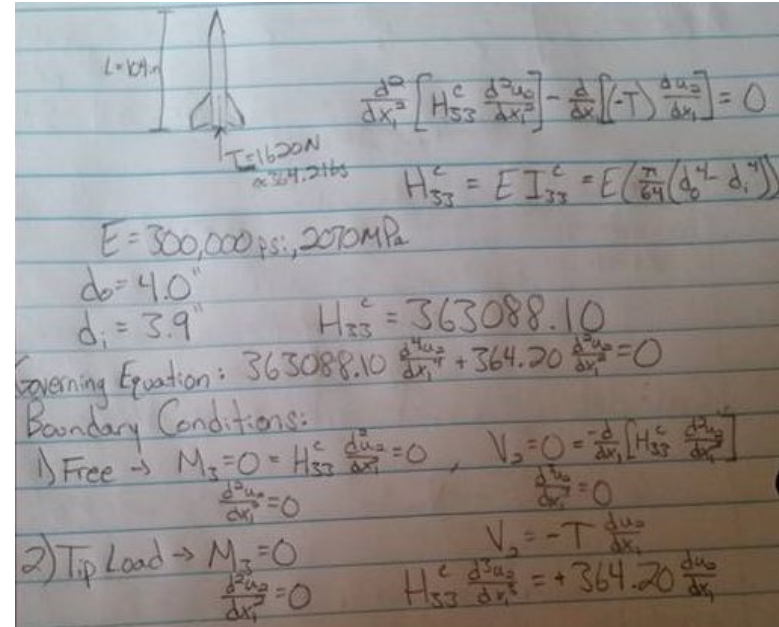 L=104in
d²/dx₁² [H₃₃ᶜ d²u₂/dx₁²] - d/dx₁ [(-T) du₂/dx₁] = 0
T=1620N
≈364.2lbs
H₃₃ᶜ = E I₃₃ᶜ = E(π/64 (d₀⁴ - dᵢ⁴))
E = 300,000 psi, 2070MPa
d₀ = 4.0"
dᵢ = 3.9"
H₃₃ᶜ = 363088.10
Governing Equation: 363088.10 d⁴u₂/dx₁⁴ + 364.20 d²u₂/dx₁² = 0
Boundary Conditions:
1) Free → M₃=0 = H₃₃ᶜ d²u₂/dx₁² = 0 , V₂=0 = -d/dx₁ [H₃₃ᶜ d²u₂/dx₁²]
d²u₂/dx₁² = 0
d³u₂/dx₁³ = 0
2) Tip Load → M₃=0
V₂ = -T du₂/dx₁
d²u₂/dx₁² = 0
H₃₃ᶜ d³u₂/dx₁³ = +364.20 du₂/dx₁